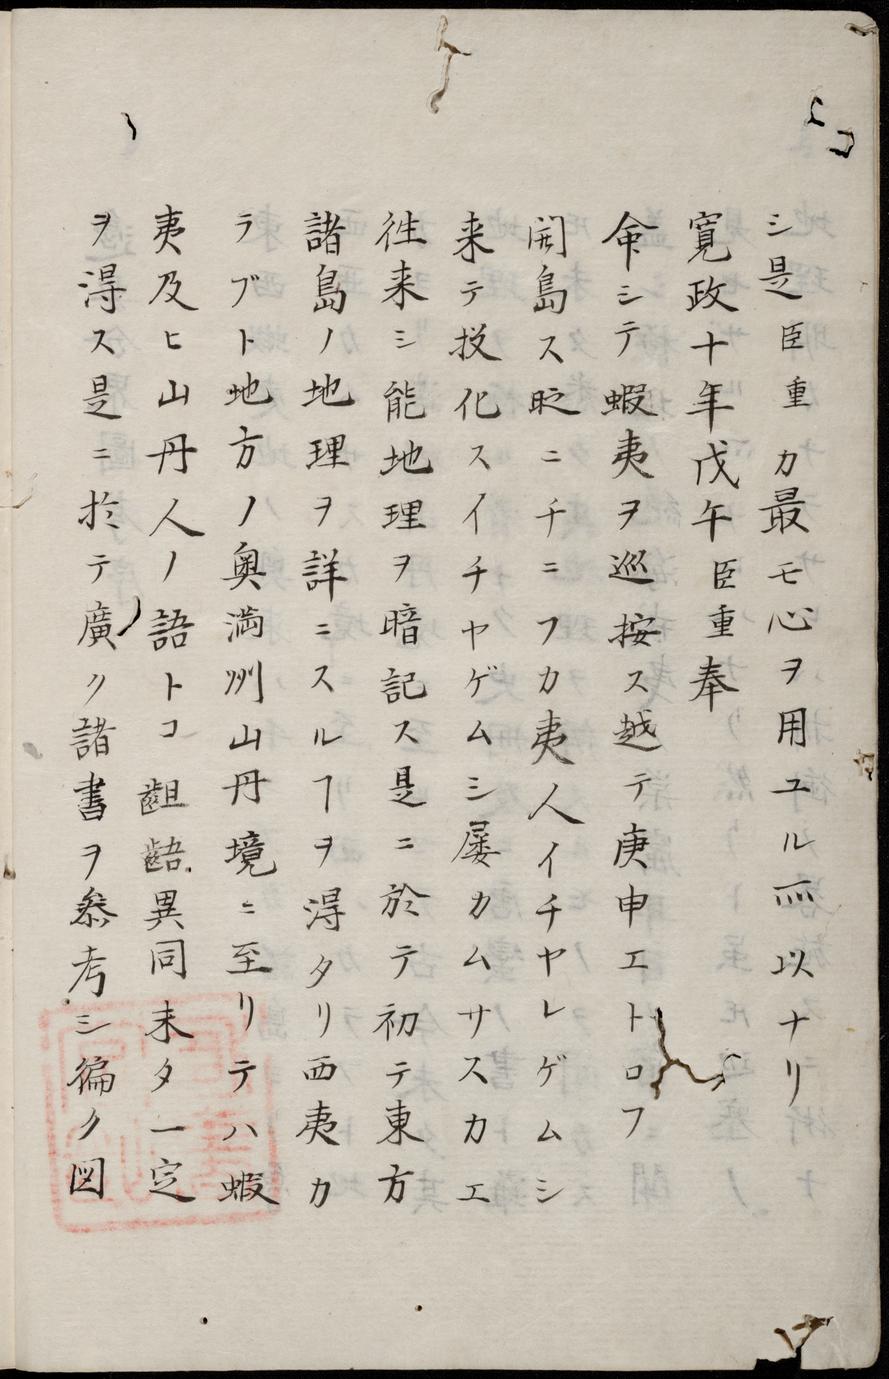 シ是臣重カ最モ心ヲ用ユル所以ナリ
寛政十年戊午臣重奉
命シテ蝦夷ヲ巡按ス越テ庚申エトロフ
開島ス時ニチニフカ夷人イチヤレゲムシ
来テ投化スイチヤゲムシ屡カムサスカエ
徃来シ能地理ヲ暗記ス是ニ於テ初テ東方
諸島ノ地理ヲ詳ニスルヿヲ得タリ西夷カ
ラブト地方ノ奥満州山丹境ニ至リテハ蝦
夷及ヒ山丹人ノ語トコ齟齬異同未タ一定
ヲ得ス是ニ於テ廣ク諸書ヲ叅考シ徧ク図